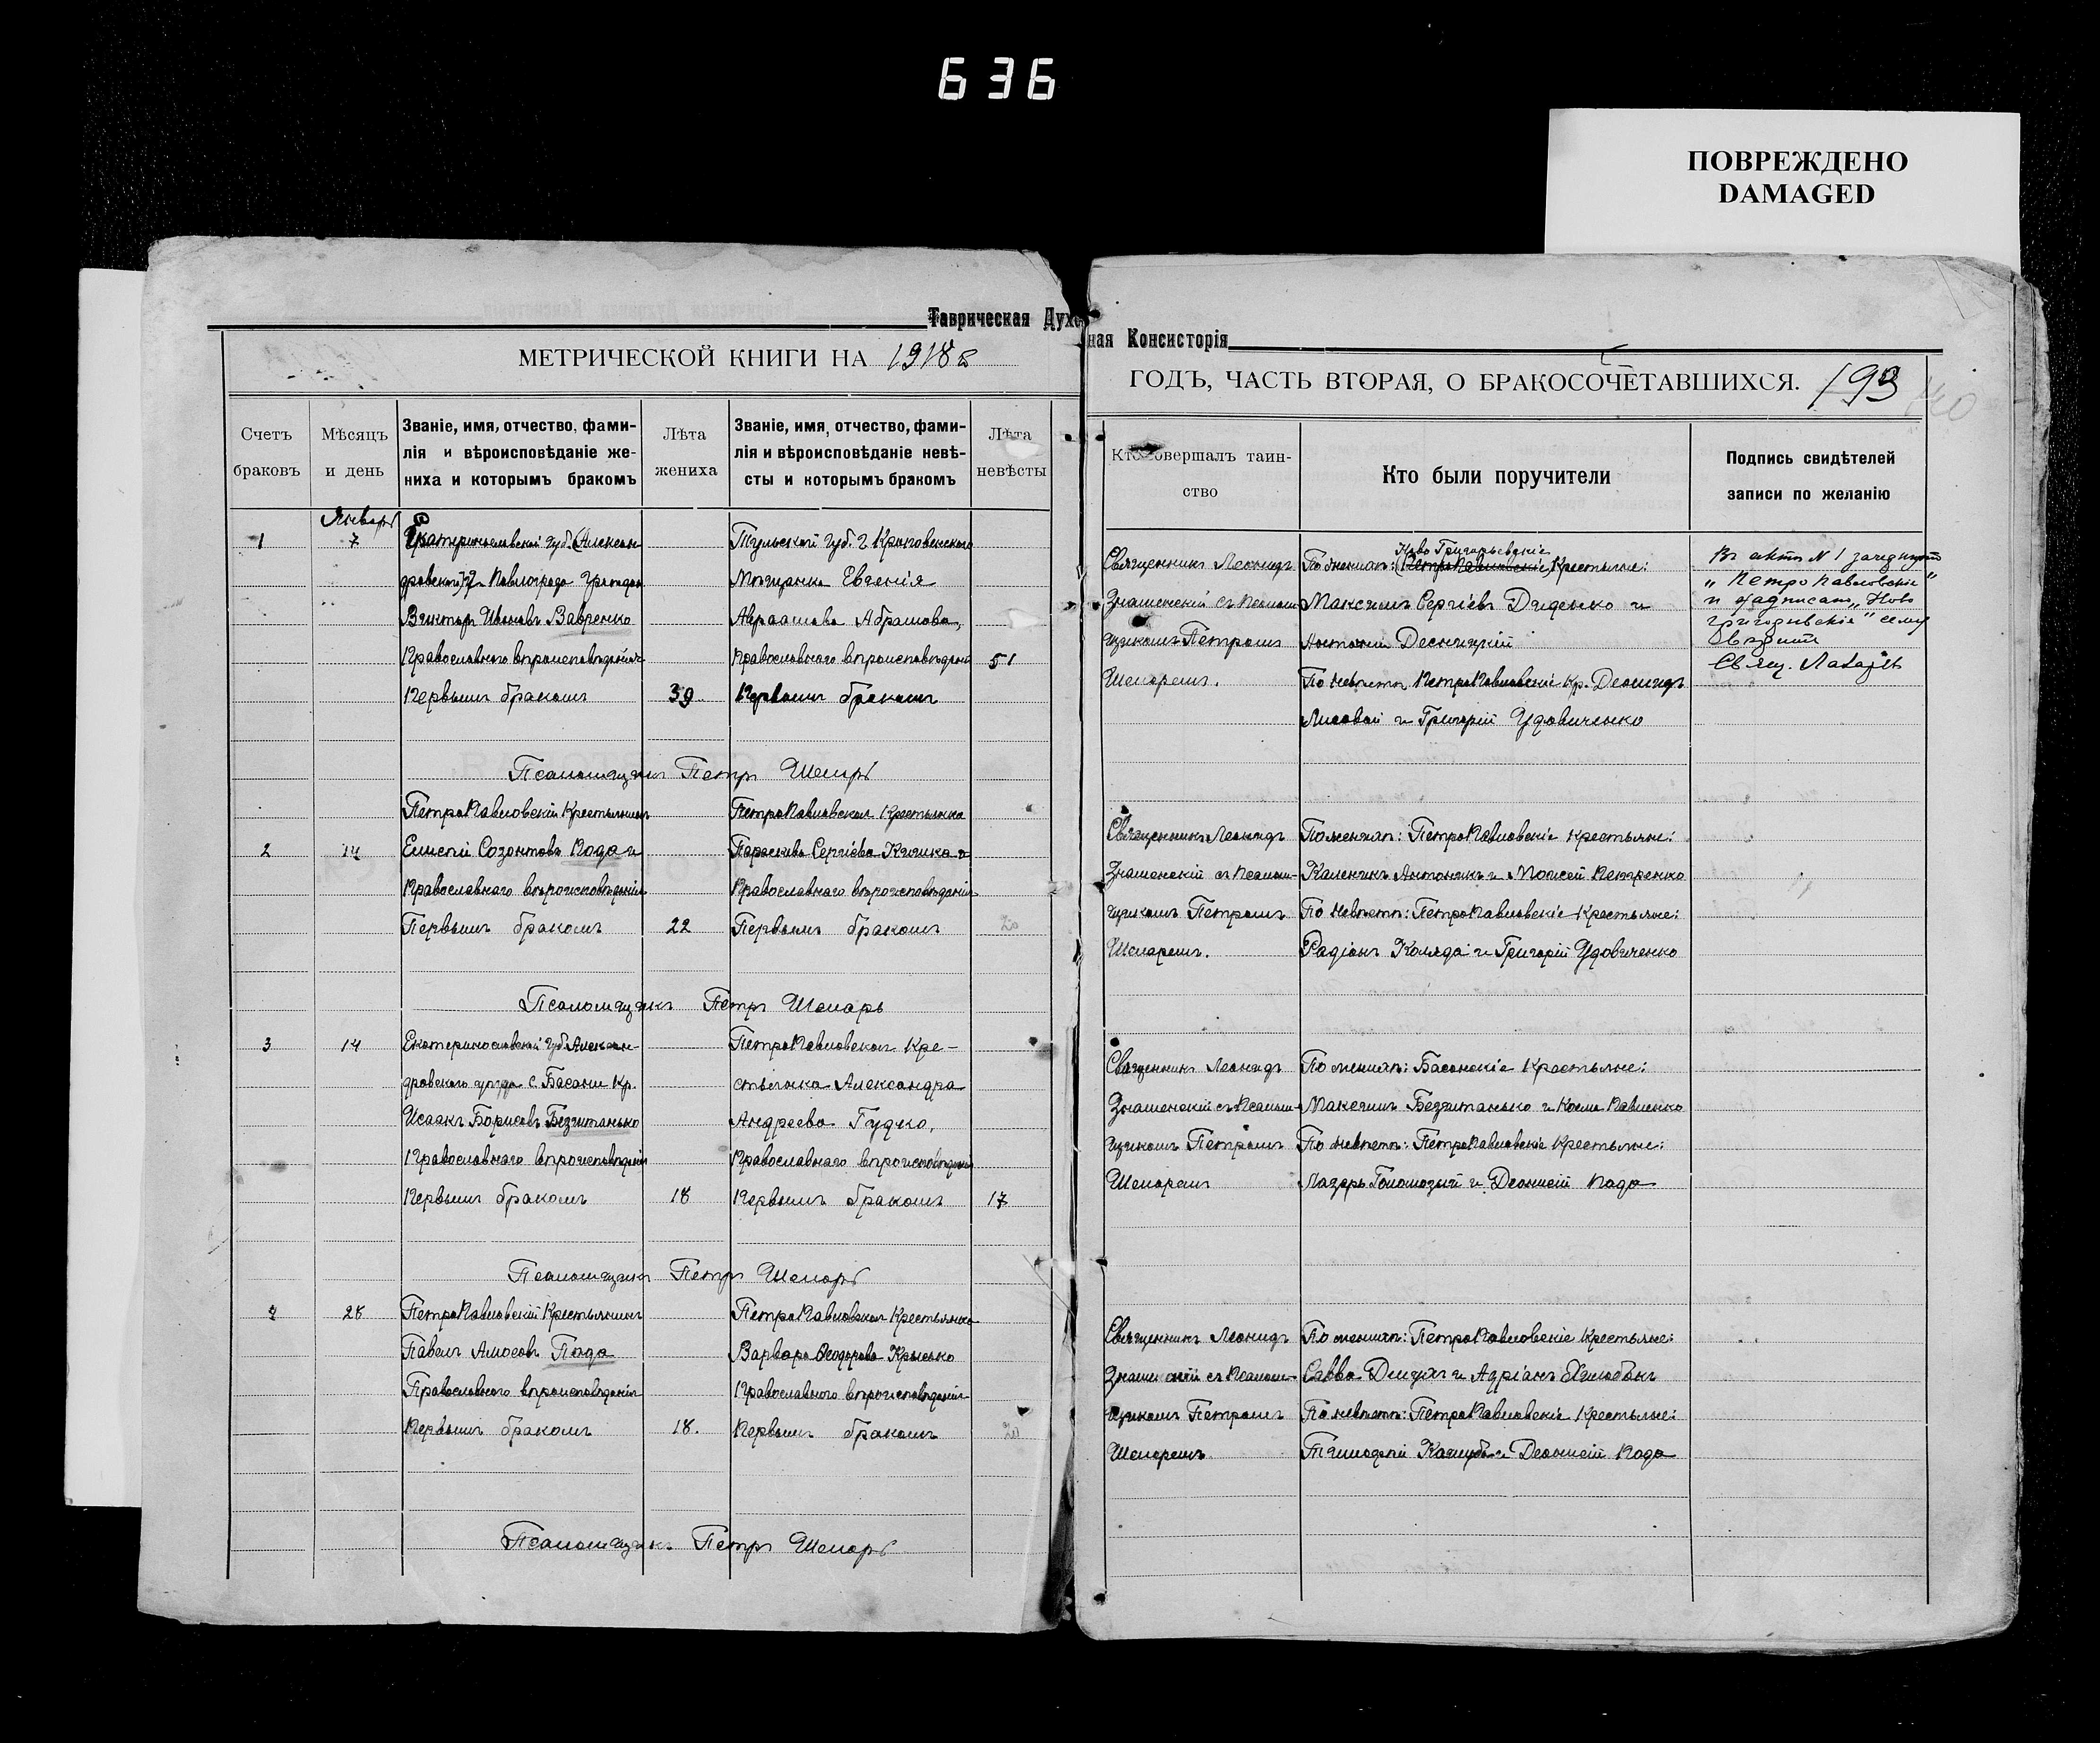 636
ПОВРЕЖДЕНО
DAMAGED
Таврическая Духо
ная Консисторія
МЕТРИЧЕСКОЙ КНИГИ НА 1918 г
ГОДЪ, ЧАСТЬ ВТОРАЯ, О БРАКОСОЧЕТАВШИХСЯ. 193
Счетъ браковъ
Мѣсяцъ и день
Званіе, имя, отчество, фами-
лія и вѣроисповѣданіе же-
ниха и которымъ бракомъ
Лѣта жениха
Званіе, имя, отчество, фами-
лія и вѣроисповѣданіе невѣ-
сты и которымъ бракомъ
Лѣта невѣсты
Кто совершалъ таин-
ство
Кто были поручители
Подпись свидѣтелей
записи по желанію
Январь
1
7
Екатеринославской губ. (Алексан
дровской) г. Павлограда Гражданинъ
Викторъ Ивановъ Вавренко
Православнаго вѣроисповѣданія
Первымъ бракомъ
39
Тульской губ. г.
Мѣщанка Евгенія
Авраамова Абрамова,
Православнаго вѣроисповѣданія
Первымъ бракомъ
51
Священникъ Леонидъ
Знаменскій съ Псалом
щикомъ Петромъ
Шеларемъ.
Ново Григорьевскіе
По женихѣ: (ПетроПавловскіе) Крестьяне:
Максимъ Сергіевъ Диденко и
Антоній Десницкій
По невѣстѣ ПетроПавловскіе Кр. Леонидъ
Лисовой и Григорій Удовиченко
Въ актѣ № 1 зачеркнуто
„ПетроПавловскіе"
и надписано „Ново
григорьевскіе" сему
вѣрить
Свящ.
Псаломщикъ Петръ Шеларь
2
14
ПетроПавловскій Крестьянинъ
Елисей Созонтовъ Пада и
Православнаго вѣроисповѣданія
Первымъ бракомъ
22
ПетроПавловская Крестьянка
Параскева Сергіева Кичика и
Православнаго вѣроисповѣданія
Первымъ бракомъ
20
Священникъ Леонидъ
Знаменскій съ Псалом-
щикомъ Петромъ
Шеларемъ.
По женихѣ: ПетроПавловскіе крестьяне:
Каленикъ Антоникъ и Моисей Петренко
По невѣстѣ: ПетроПавловскіе Крестьяне:
Радіонъ Коляда и Григорій Удовиченко
Псаломщикъ Петръ Шеларь
3
14
Екатеринославской губ. Алексан-
дровскаго уѣзда с. Басани Кр.
Исаакъ Борисовъ Безштанько
Православнаго вѣроисповѣданія
Первымъ бракомъ
18
ПетроПавловская Кре-
стьянка Александра
Андреева Гудко,
Православнаго вѣроисповѣданія
Первымъ бракомъ
17
Священникъ Леонидъ
Знаменскій съ Псалом-
щикомъ Петромъ
Шеларемъ
По женихѣ: Басанскіе Крестьяне:
Максимъ Безштанько и Косма Павленко
По невѣстѣ: ПетроПавловскіе Крестьяне:
Лазарь Голомозый и Деонисій Пада
Псаломщикъ Петръ Шеларь
4
28
ПетроПавловскій Крестьянинъ
Павелъ Амосовъ Пада
Православнаго вѣроисповѣданія
Первымъ бракомъ
18.
ПетроПавловская Крестьянка
Варвара Ѳеодорова Крысько
Православнаго вѣроисповѣданія
Первымъ бракомъ
20
Священникъ Леонидъ
Знаменскій съ Псалом-
щикомъ Петромъ
Шеларемъ
По женихѣ: ПетроПавловскіе Крестьяне:
Савва Демухъ и Адріанъ
По невѣстѣ: ПетроПавловскіе Крестьяне:
Тимофей Качуба и Деонисій Пада
Псаломщикъ Петръ Шеларь